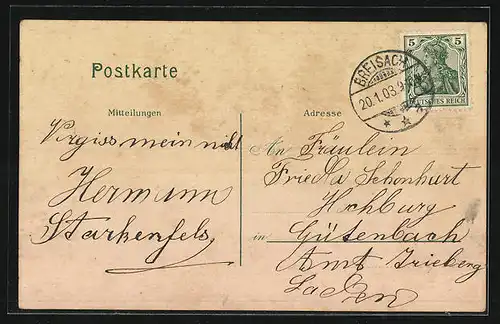 Postkarte
Mitteilungen
Vergiss mein nicht
Hermann
Starkenfels
5 5
DEUTSCHES REICH
BREISACH
20.1.03.9
Adresse
An Fräulein
Frieda Schonhart
Hochburg
in Gütenbach
Amt Trieberg
Baden